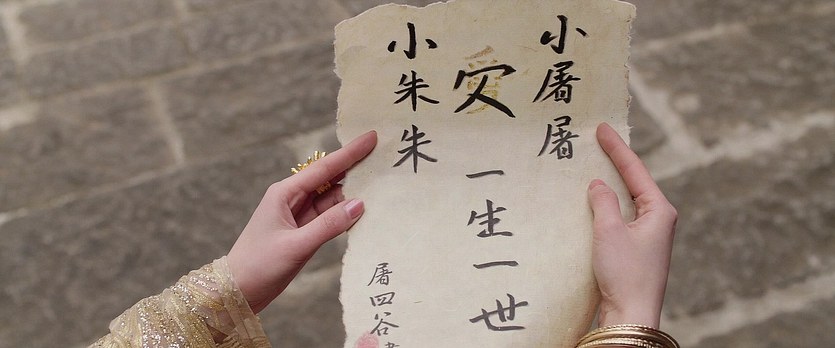 小屠屠
愛一生一世
小朱朱
屠四谷